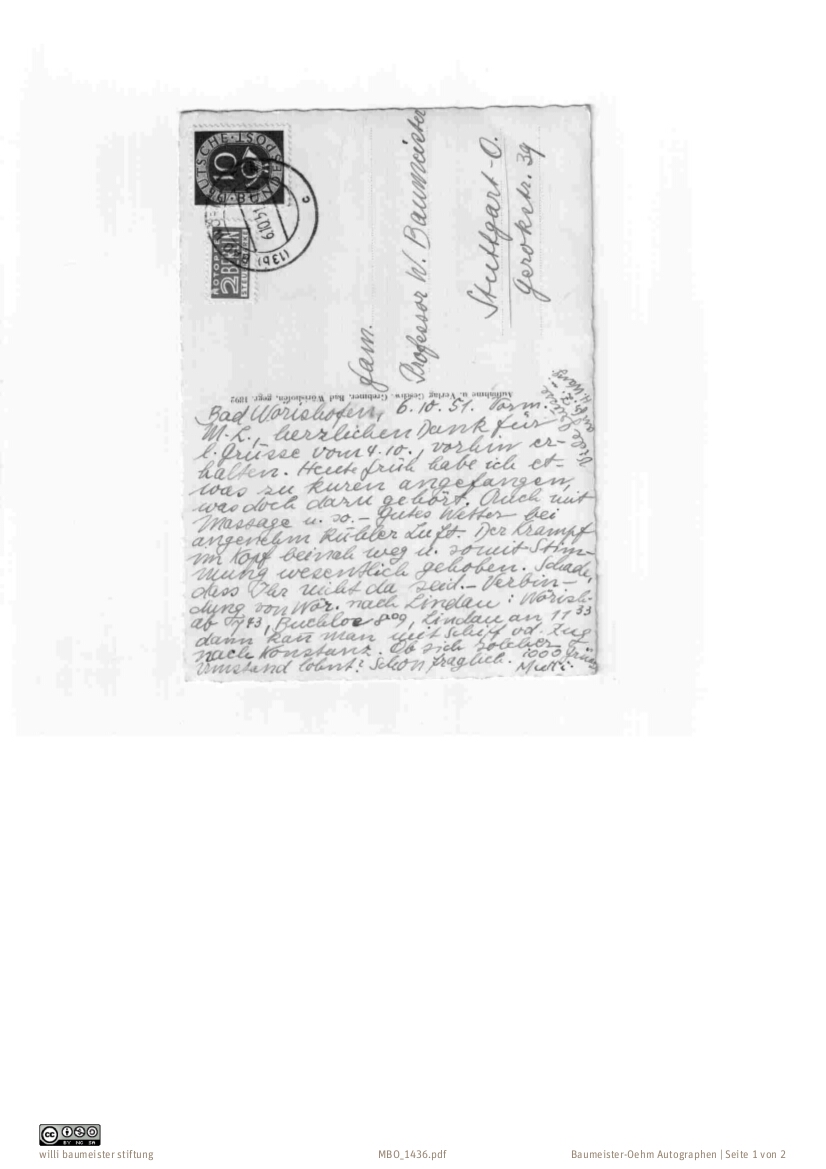 DEUTSCHE BUNDESPOST
10
6.10.51
(13b)
c
NOTOPFER
2 BERLIN
STEUERMARKE
Fam.
Professor W. Baumeister
Stuttgart-O.
Gerokstr. 39
Aufnahme u. Verlag Gebrdr. Grebmer, Bad Wörishofen, gegr. 1892
Bad Wörishofen, 6.10.51. Vorm.
M.L., herzlichen Dank für
l. Grüsse vom 4.10., vorhin er-
halten. Heute früh habe ich et-
was zu kuren angefangen,
was doch dazu gehört. Auch mit
Massage u. so. – Gutes Wetter bei
angenehm kühler Luft. Der Krampf
im Kopf beinah weg u. somit Stim-
mung wesentlich gehoben. Schade,
dass Ihr nicht da seid. – Verbin-
dung von Wör. nach Lindau: Wörish.
ab, Buchloe 8 09, Lindau an 11 33
dann kan man mit Schiff od. Zug
nach Konstanz. Ob sich solcher
Umstand lohnt? Schon fraglich. 1000
Viele Grüsse
willi baumeister stiftung
MBO_1436.pdf
Baumeister-Oehm Autographen | Seite 1 von 2
cc
BY NC SA